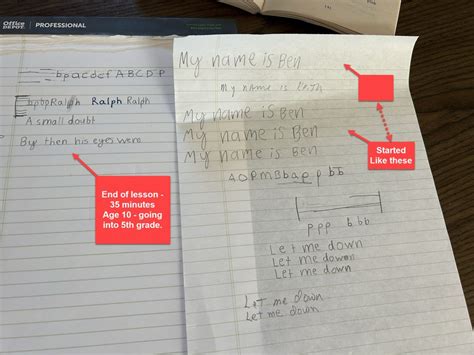 Office DEPOT. PROFESSIONAL
(A)
bpacdef ABCD P
bpbp Ralph Ralph Ralph
A small doubt
By then his eyes were
End of lesson -
35 minutes
Age 10 - going
into 5th grade.
My name is Ben
My name is
My name is Ben
My name is Ben
My name is Ben
Started
Like these
A O P m B b a p p b b
p p p b b b
Let me down
Let me down
Let me down
Let me down
Let me down